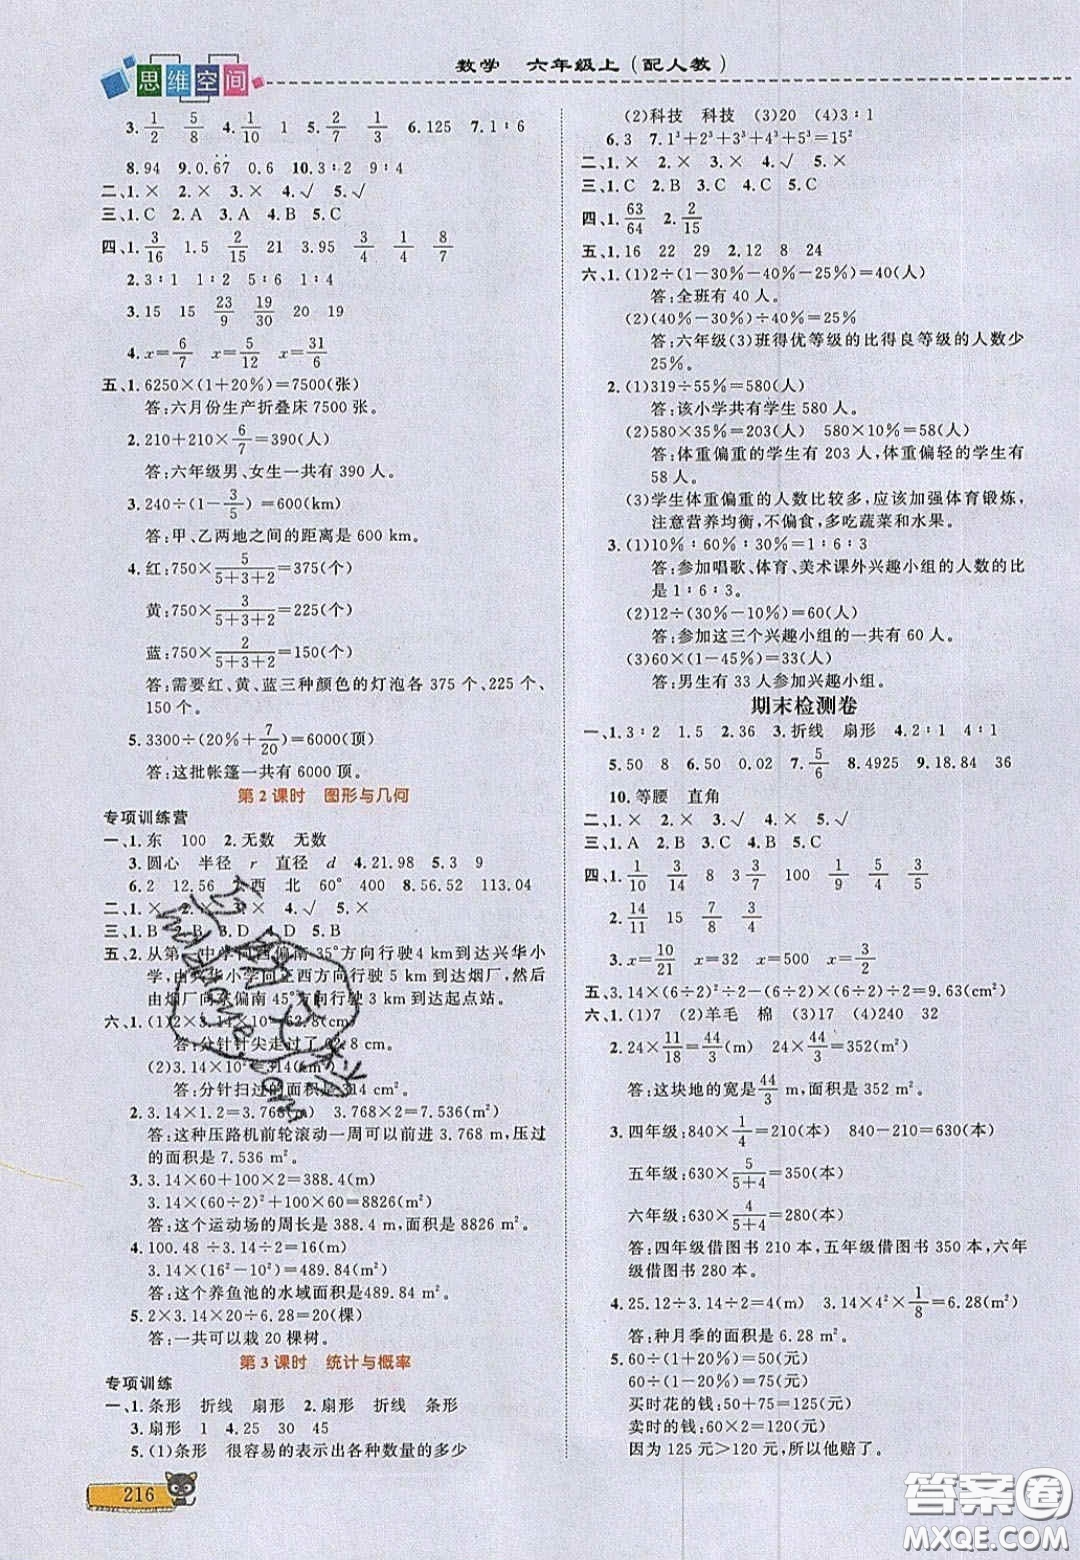 思维空间
数学 六年级上(配人教)
3. 1/2 5/8 4. 1/10 1 5. 2/7 1/3 6.125 7.1∶6
8.94 9.0.6̇7̇ 0.6 10.3∶2 9∶4
二、1.× 2.× 3.× 4.√ 5.√
三、1.C 2.A 3.A 4.B 5.C
四、1. 3/16 1.5 2/15 21 3.95 3/4 1/4 8/7
2.3∶1 1∶2 5∶1 6∶1
3.15 15 23/9 19/30 20 19
4.x=6/7 x=5/12 x=31/6
五、1.6250×(1+20%)=7500(张)
答:六月份生产折叠床 7500 张。
2.210+210×6/7=390(人)
答:六年级男、女生一共有 390 人。
3.240÷(1-3/5)=600(km)
答:甲、乙两地之间的距离是 600 km。
4.红:750×5/(5+3+2)=375(个)
黄:750×3/(5+3+2)=225(个)
蓝:750×2/(5+3+2)=150(个)
答:需要红、黄、蓝三种颜色的灯泡各 375 个、225 个、
150 个。
5.3300÷(20%+7/20)=6000(顶)
答:这批帐篷一共有 6000 顶。
第 2 课时 图形与几何
专项训练营
一、1.东 100 2.无数 无数
3.圆心 半径 r 直径 d 4.21.98 5.3 9
6.2 12.56 西 北 60° 400 8.56.52 113.04
二、1.× 2.× 3.× 4.√ 5.×
三、1.B 2.B 3.D 4.D 5.B
五、2.从第 中学向西偏南 35°方向行驶 4 km 到达兴华小
学,由兴华小学向正西方向行驶 5 km 到达烟厂,然后
由烟厂向东偏南 45°方向行驶 3 km 到达起点站。
六、1.(1)2×3.14×10=62.8(cm)
答:分针针尖走过了 62.8 cm。
(2)3.14×10²=314(cm²)
答:分针扫过的面积是 314 cm²。
2.3.14×1.2=3.768(m) 3.768×2=7.536(m²)
答:这种压路机前轮滚动一周可以前进 3.768 m,压过
的面积是 7.536 m²。
3.3.14×60+100×2=388.4(m)
3.14×(60÷2)²+100×60=8826(m²)
答:这个运动场的周长是 388.4 m,面积是 8826 m²。
4.100.48÷3.14÷2=16(m)
3.14×(16²-10²)=489.84(m²)
答:这个养鱼池的水域面积是489.84 m²。
5.2×3.14×20÷6.28=20(棵)
答:一共可以栽 20 棵树。
第 3 课时 统计与概率
专项训练
一、1.条形 折线 扇形 2.扇形 折线 条形
3.扇形 1 4.25 30 45
5.(1)条形 很容易的表示出各种数量的多少
216
(2)科技 科技 (3)20 (4)3∶1
6.3 7.1³+2³+3³+4³+5³=15²
二、1.× 2.× 3.√ 4.× 5.√
三、1.C 2.B 3.A 4.C 5.C
四、1. 63/64 2. 2/15
五、1.16 22 29 2.12 8 24
六、1.(1)2÷(1-30%-40%-25%)=40(人)
答:全班有 40 人。
(2)(40%-30%)÷40%=25%
答:六年级(3)班得优等级的比得良等级的人数少
25%。
2.(1)319÷55%=580(人)
答:该小学共有学生 580 人。
(2)580×35%=203(人) 580×10%=58(人)
答:体重偏重的学生有 203 人,体重偏轻的学生有
58 人。
(3)学生体重偏重的人数比较多,应该加强体育锻炼,
注意营养均衡,不偏食,多吃蔬菜和水果。
3.(1)10%∶60%∶30%=1∶6∶3
答:参加唱歌、体育、美术课外兴趣小组的人数的比
是 1∶6∶3。
(2)12÷(30%-10%)=60(人)
答:参加这三个兴趣小组的一共有 60 人。
(3)60×(1-45%)=33(人)
答:男生有 33 人参加兴趣小组。
期末检测卷
一、1.3∶2 1.5 2.36 3.折线 扇形 4.2∶1 4∶1
5.50 8 6.50 0.02 7. 5/6 8.4925 9.18.84 36
10.等腰 直角
二、1.× 2.× 3.√ 4.× 5.×
三、1.A 2.B 3.C 4.C 5.B
四、1. 1/10 3/14 8 3 3/7 100 1/9 5/4 3/4
2. 14/11 15 7/8 3/4
3.x=10/21 x=32 x=500 x=3/2
五、3.14×(6÷2)²÷2-(6÷2)×(6÷2)÷2=9.63(cm²)
六、1.(1)7 (2)羊毛 棉 (3)17 (4)240 32
2.24×11/18=44/3(m) 24×44/3=352(m²)
答:这块地的宽是44/3 m,面积是 352 m²。
3.四年级:840×1/4=210(本) 840-210=630(本)
五年级:630×5/(5+4)=350(本)
六年级:630×4/(5+4)=280(本)
答:四年级借图书 210 本,五年级借图书 350 本,六年
级借图书 280 本。
4.25.12÷3.14÷2=4(m) 3.14×4²×1/8=6.28(m²)
答:种月季的面积是 6.28 m²。
5.60÷(1+20%)=50(元)
60÷(1-20%)=75(元)
买时花的钱:50+75=125(元)
卖时的钱:60×2=120(元)
因为 125 元>120 元,所以他赔了。
答案圈
MXQE.COM